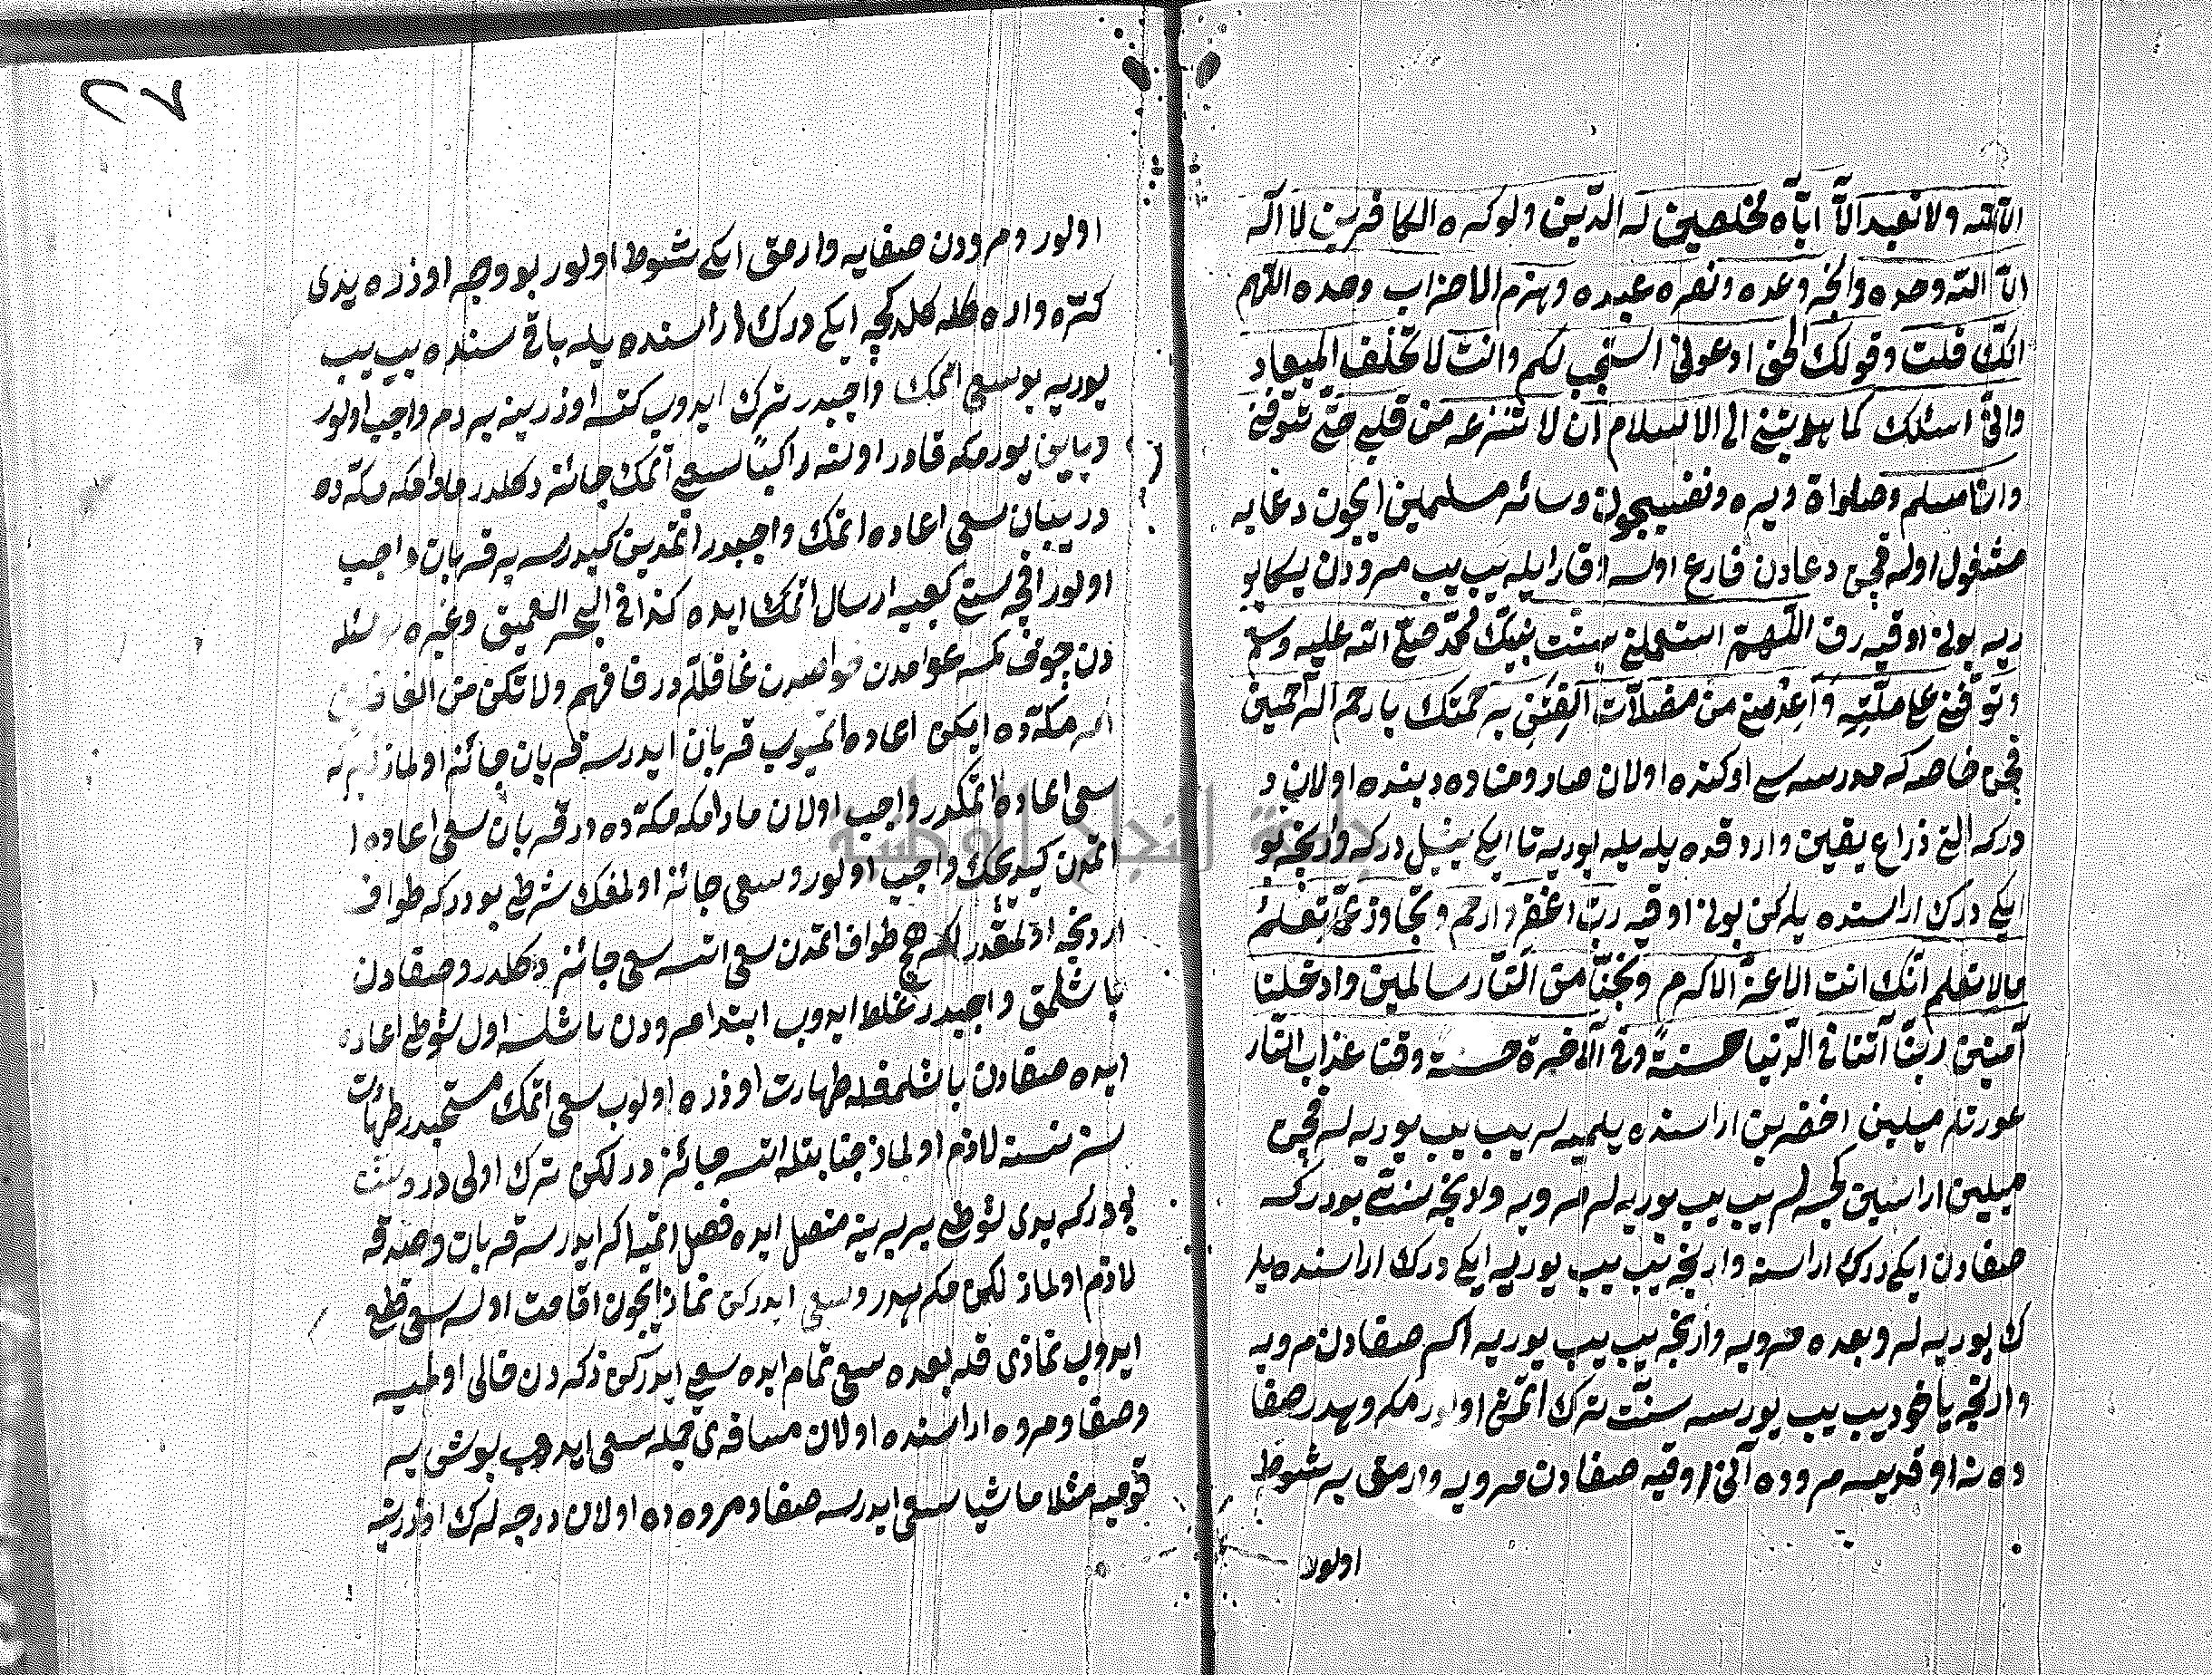 الا الله ولا نعبد الا اياه مخلصين له الدين ولو كره الكافرين لا اله
الا الله وحده وانجز وعده ونصر عبده وهزم الاحزاب وحده اللهم
انك قلت وقولك الحق ادعونى استجب لكم وانت لا تخلف الميعاد
وانى اسئلك كما هديتنى الى الاسلام ان لا تنزعه من قلبى حتى تتوفنى
وانا مسلم وصلواة ويره ونفسيچون وسائر مسلمين ايچون دعايه
مشغول اوله قچن دعادن فارغ اولسه وقار ايله يب يب مرودن يكايو
ريه بونى اوقيه رق اللهم استعملنى بسنت نبيك محمد صلى الله عليه وسلم
وتوفنى على ملته واعذنى من مضلات الفتن برحمتك يا ارحم الراحمين
قچن خاصكه مدرسه سى اوكنده اولان مناره ديبنده اولان د
دركه التى ذراع يقين واردقده يله يله يوريه تا ايكى يشيل دركه وارنجه بو
ايكى درك اراسنده يلركن بونى اوقيه رب اغفر وارحم وتجاوز عما تعلم
مالا نعلم انك انت الاعز الاكرم ونجنا من النار سالمين وادخلنا
آمنين ربنا آتنا فى الدنيا حسنة وفى الآخرة حسنة وقنا عذاب النار
عورتلر ميلين اخضرين اراسنده يلميه لر يب يب يوريه لر قچن
ميلين اراسين كچسه لر يب يب يوريه لر مرويه وارنجه سنتى بودركه
صفادن ايكى درك اراسنه وارنجه يب يب يوريه ايكى درك اراسنده يلر
ك يوريه لر وبعده مرويه وارنجه يب يب يوريه اكر صفادن مرويه
وارنجه ياخود يب يب يورسه سنت ترك اتمش اولور مكروهدر صفا
ده نه اوقديسه مروده آنى اوقيه صفادن مرويه وارمق بر شوط
اولور
٢٧
اولور ومرودن صفايه وارمق ايكى شوط اولور بو وجه اوزره يدى
كره واره كله كلدكچه ايكى درك اراسنده يله باقى سنده يب يب
يوريه بو سعى اتمك واجبدر ترك ايدوب كتسه اوزرينه بر دم واجب اولور
وپياين يورمكه قادر اولسه راكبا سعى اتمك جائز دكلدر مادامكه مكه ده
در يبان سعى اعاده اتمك واجبدر اتمدين كيدرسه بر قربان واجب
اولور اقچه ستى كعبيه ارسال اتمك ايده كذا فى البحر العميق وغيره بو مسئله
دن چوق كمسه عوامدن خواصدن غافللر در فافهم ولا تكن من الغافلين
اكر مكه ده ايكن اعاده اتميوب قربان ايدرسه قربان جائز اولماز
سعى اعاده اتمكدر واجب اولان مادامكه مكه ده در قربان سعى اعاده ا
اتمدن كيديجك واجب اولور وسعى جائز اولمغك شرطى بودركه طواف
اردنجه اولمقدر اكر حج طواف اتمدن سعى اتسه سعى جائز دكلدر وصفادن
باشلمق واجبدر غلط ايدوب ابتدا مرودن باشلسه اول شوطى اعاده
ايده صفادن باشلمغله طهارت اوزره اولوب سعى اتمك مستحبدر طهارت
سز نسنه لازم اولماز جنابتله اتسه جائز در لكن ترك اولى در وسنت
بودركه يدى شوطى بربرينه متصل ايده فصل اتميه اكر ايدرسه قربان وصدقه
لازم اولماز لكن مكروهدر وسعى ايدركن نماز ايچون اقامت اولسه سعى قطع
ايدوب نمازى قله بعده سعى تمام ايده سعى ايدركن ذكردن خالى اولميه
وصفا ومروه اراسنده اولان مسافه ى جمله سعى ايدوب بوش ير
قوميه مثلا ماشيا سعى ايدرسه صفا ومروه ده اولان درجه لرك اوزرينه